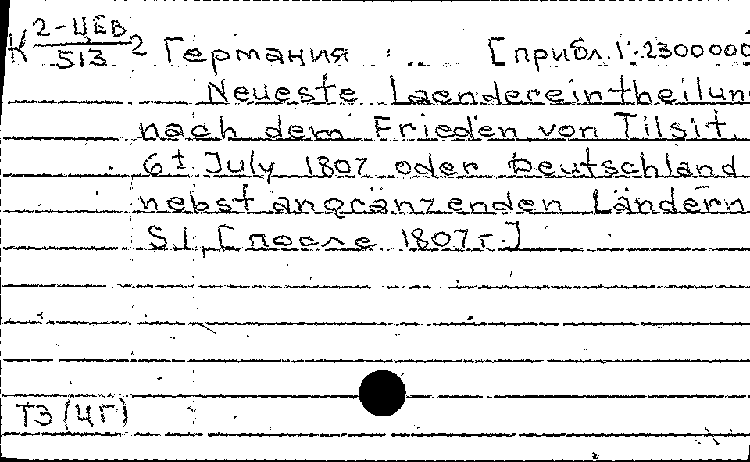 К 2-ЦЕВ/513 2 Германия [прибл. 1:2300000
Neueste Laendereintheilun
nach dem Frieden von Tilsit.
6t July 1807 oder Deutschland
nebst angränzenden Ländern
S.l., [после 1807 г.]
ТЗ (ЧГ)